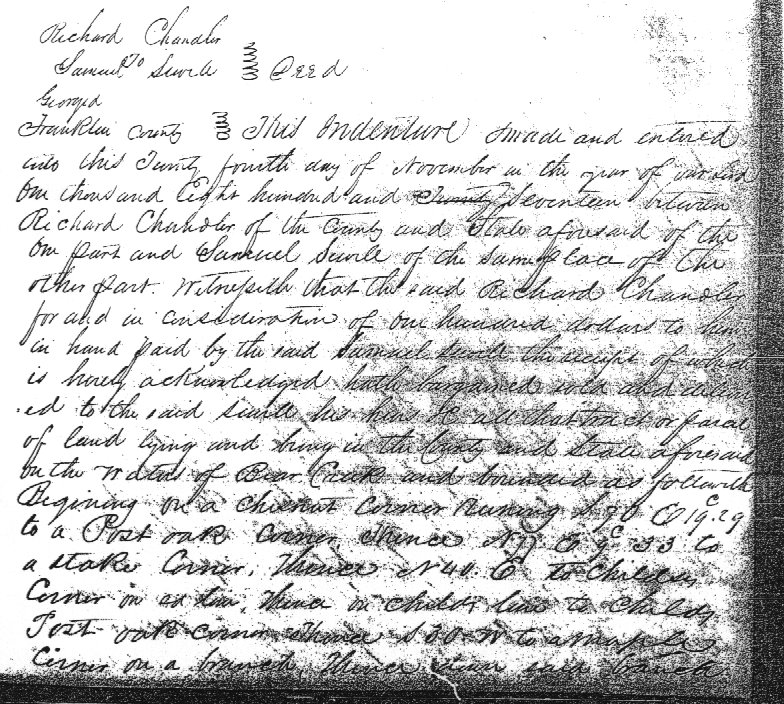 Richard Chandler
To
Samuel Sewell } Deed
Georgia
Franklin County } This Indenture made and entered
into this Twenty fourth day of November in the year of our Lord
One thousand Eight hundred and Seventeen between
Richard Chandler of the County and State aforesaid of the
One part and Samuel Sewell of the same place of the
other part. Witnesseth that the said Richard Chandler
for and in consideration of One hundred dollars to him
in hand paid by the said Samuel Sewell the receipt of which
is hereby acknowledged hath bargained sold and deliver
ed to the said Sewell his heirs &C all that tract or parcel
of land lying and being in the County and State aforesaid
on the Waters of Bear Creek and bounded as followeth
Begining on a Chesnut Corner Runing S 70 E 19c.29
to a Post oak Corner Thence N E 9c 33 to
a stake Corner, Thence N 40 E to Childses
Corner on line, Thence on Childs line to Childs
Post oak corner Thence S 30 W to a maple
Corner on a branch, Thence down said branch